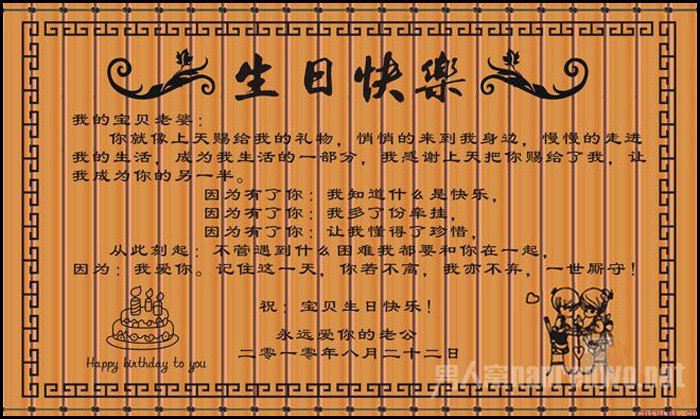 生日快樂
我的宝贝老婆：
你就像上天赐给我的礼物，悄悄的来到我身边，慢慢的走进
我的生活，成为我生活的一部分，我感谢上天把你赐给了我，让
我成为你的另一半。
因为有了你：我知道什么是快乐，
因为有了你：我多了份牵挂，
因为有了你：让我懂得了珍惜，
从此刻起：不管遇到什么困难我都要和你在一起，
因为：我爱你。记住这一天，你若不离，我亦不弃，一世厮守！
祝：宝贝生日快乐！
永远爱你的老公
二零一零年八月二十二日
Happy birthday to you